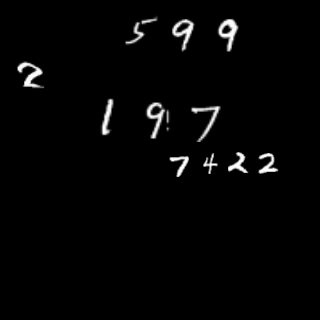 599
2
197
7422